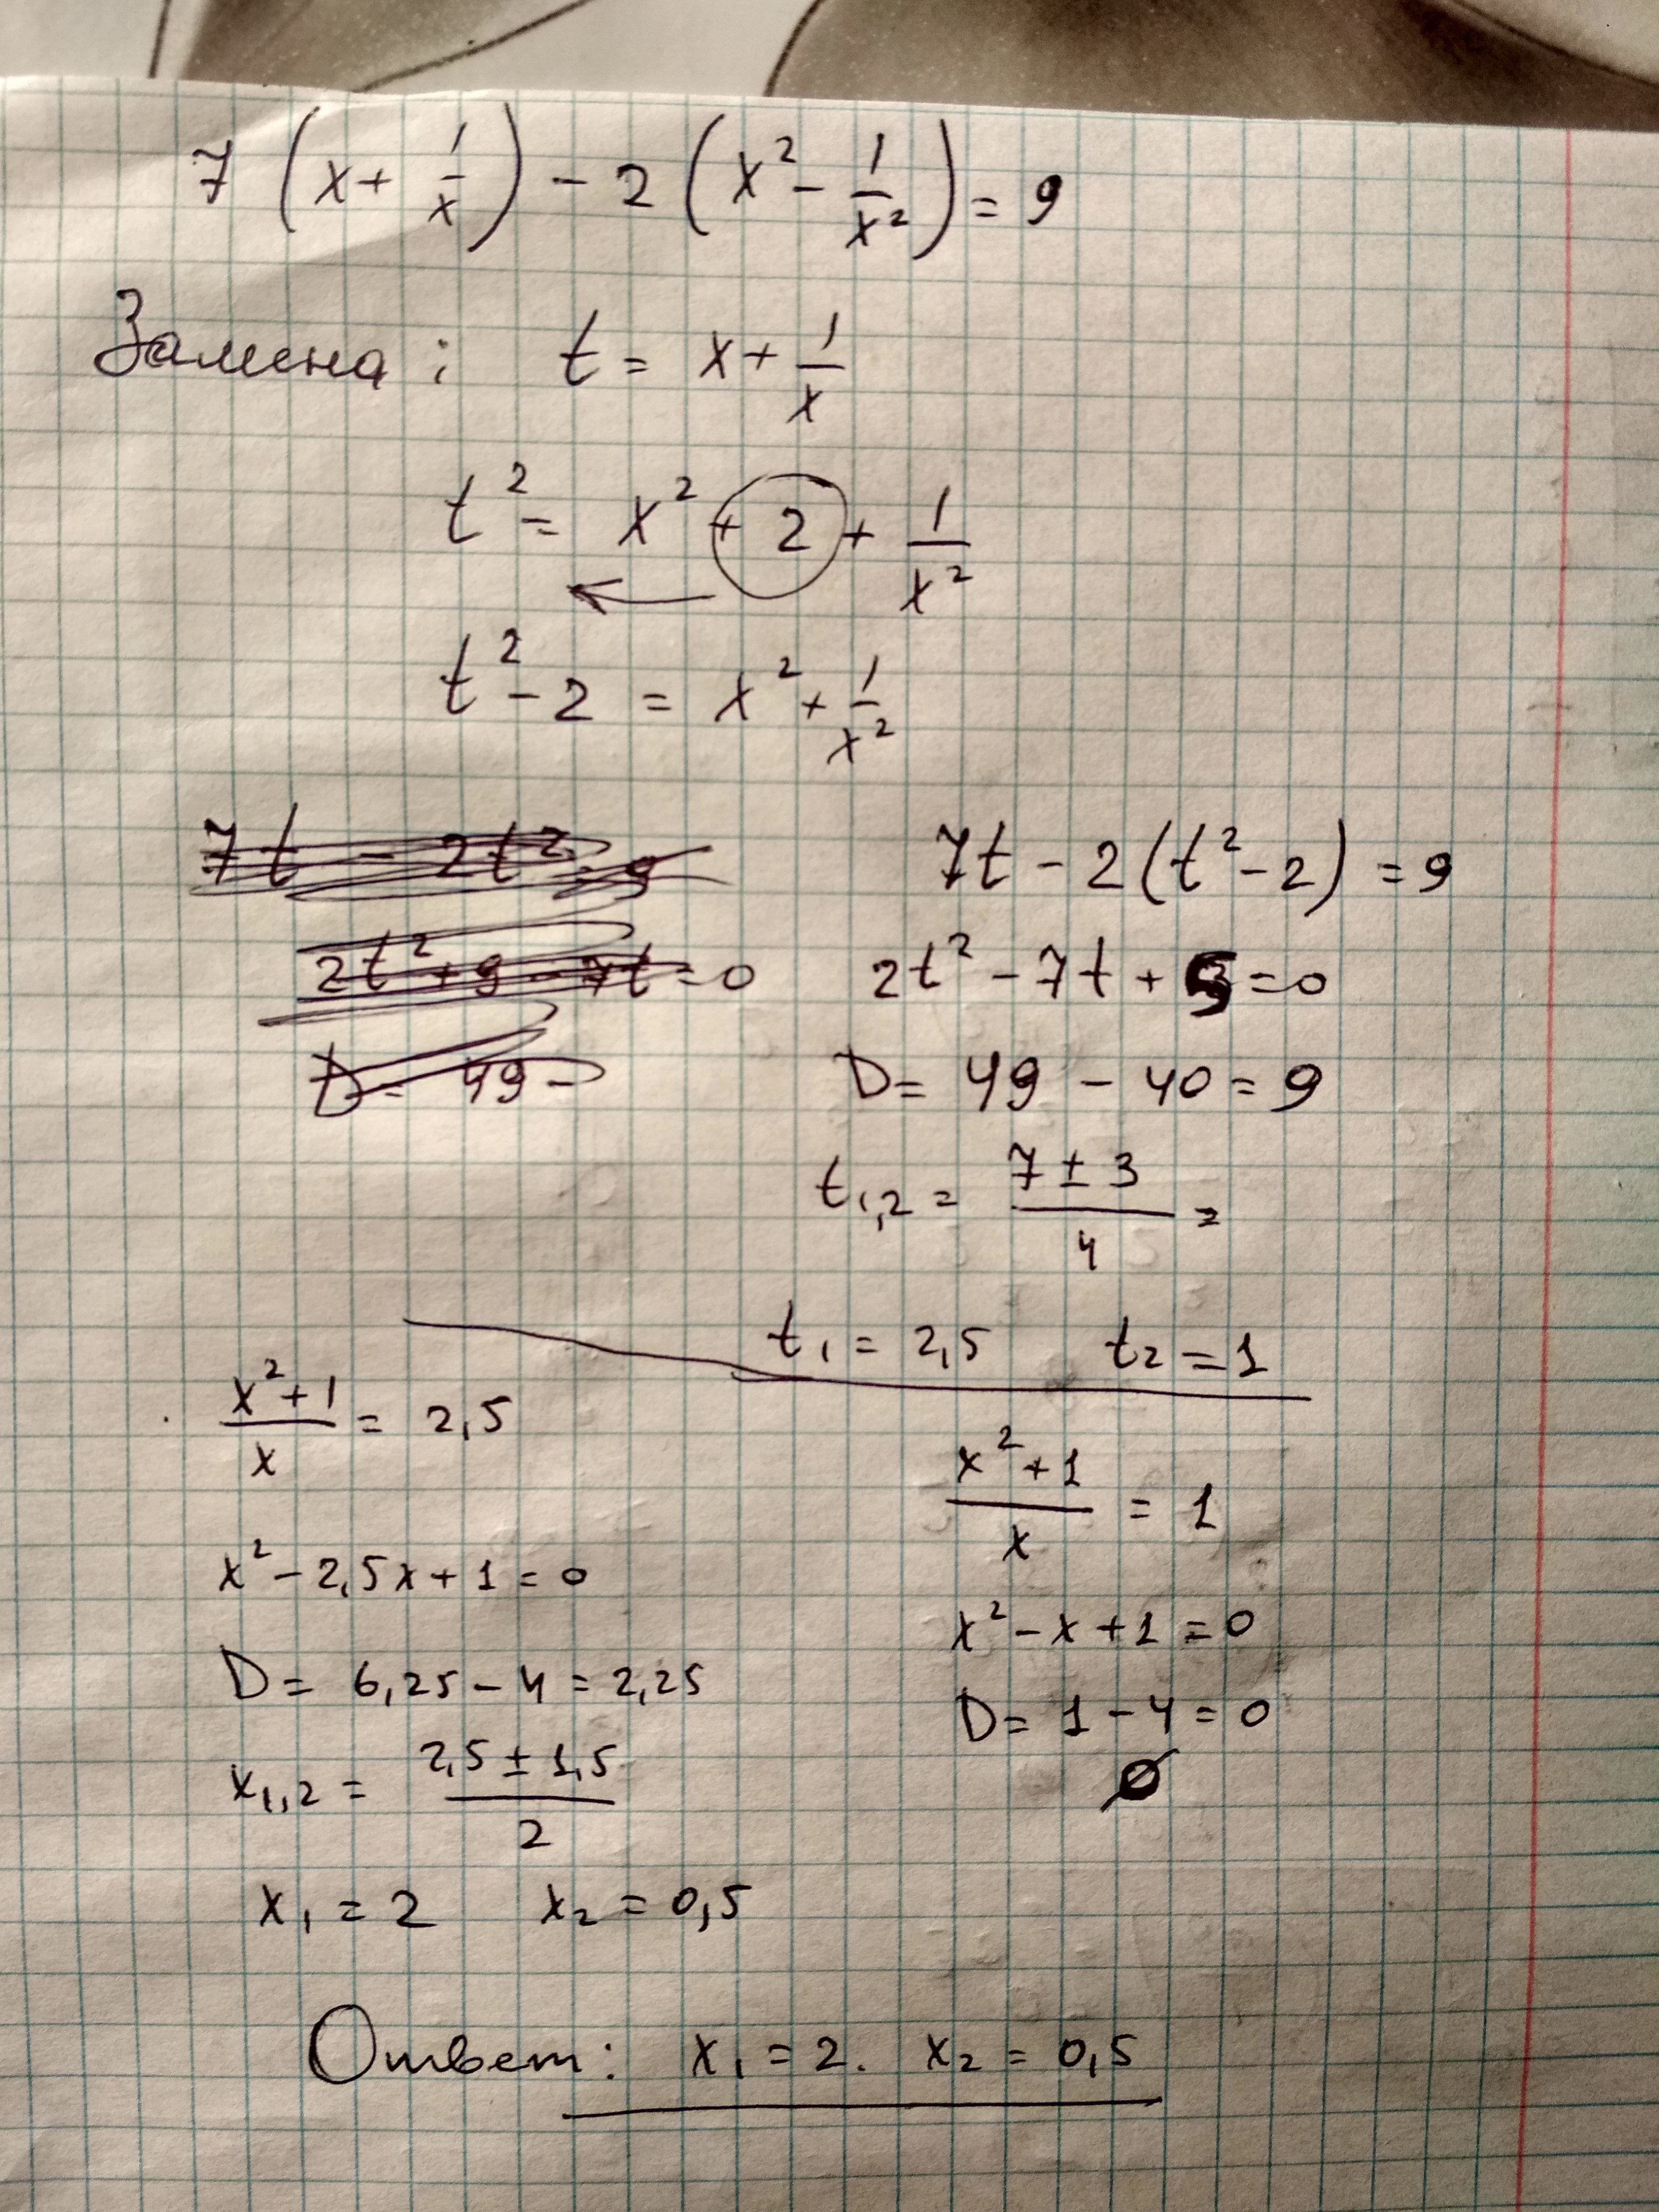 7 (x + 1/x) - 2 (x² - 1/x²) = 9
Замена: t = x + 1/x
t² = x² + 2 + 1/x²
t² - 2 = x² + 1/x²
7t - 2t² = 9
2t² + 9 - 7t = 0
D = 49 -
7t - 2(t² - 2) = 9
2t² - 7t + 5 = 0
D = 49 - 40 = 9
t₁,₂ = (7 ± 3)/4 =
t₁ = 2,5 t₂ = 1
(x² + 1)/x = 2,5
x² - 2,5x + 1 = 0
D = 6,25 - 4 = 2,25
x₁,₂ = (2,5 ± 1,5)/2
x₁ = 2 x₂ = 0,5
(x² + 1)/x = 1
x² - x + 1 = 0
D = 1 - 4 = 0
∅
Ответ: x₁ = 2. x₂ = 0,5